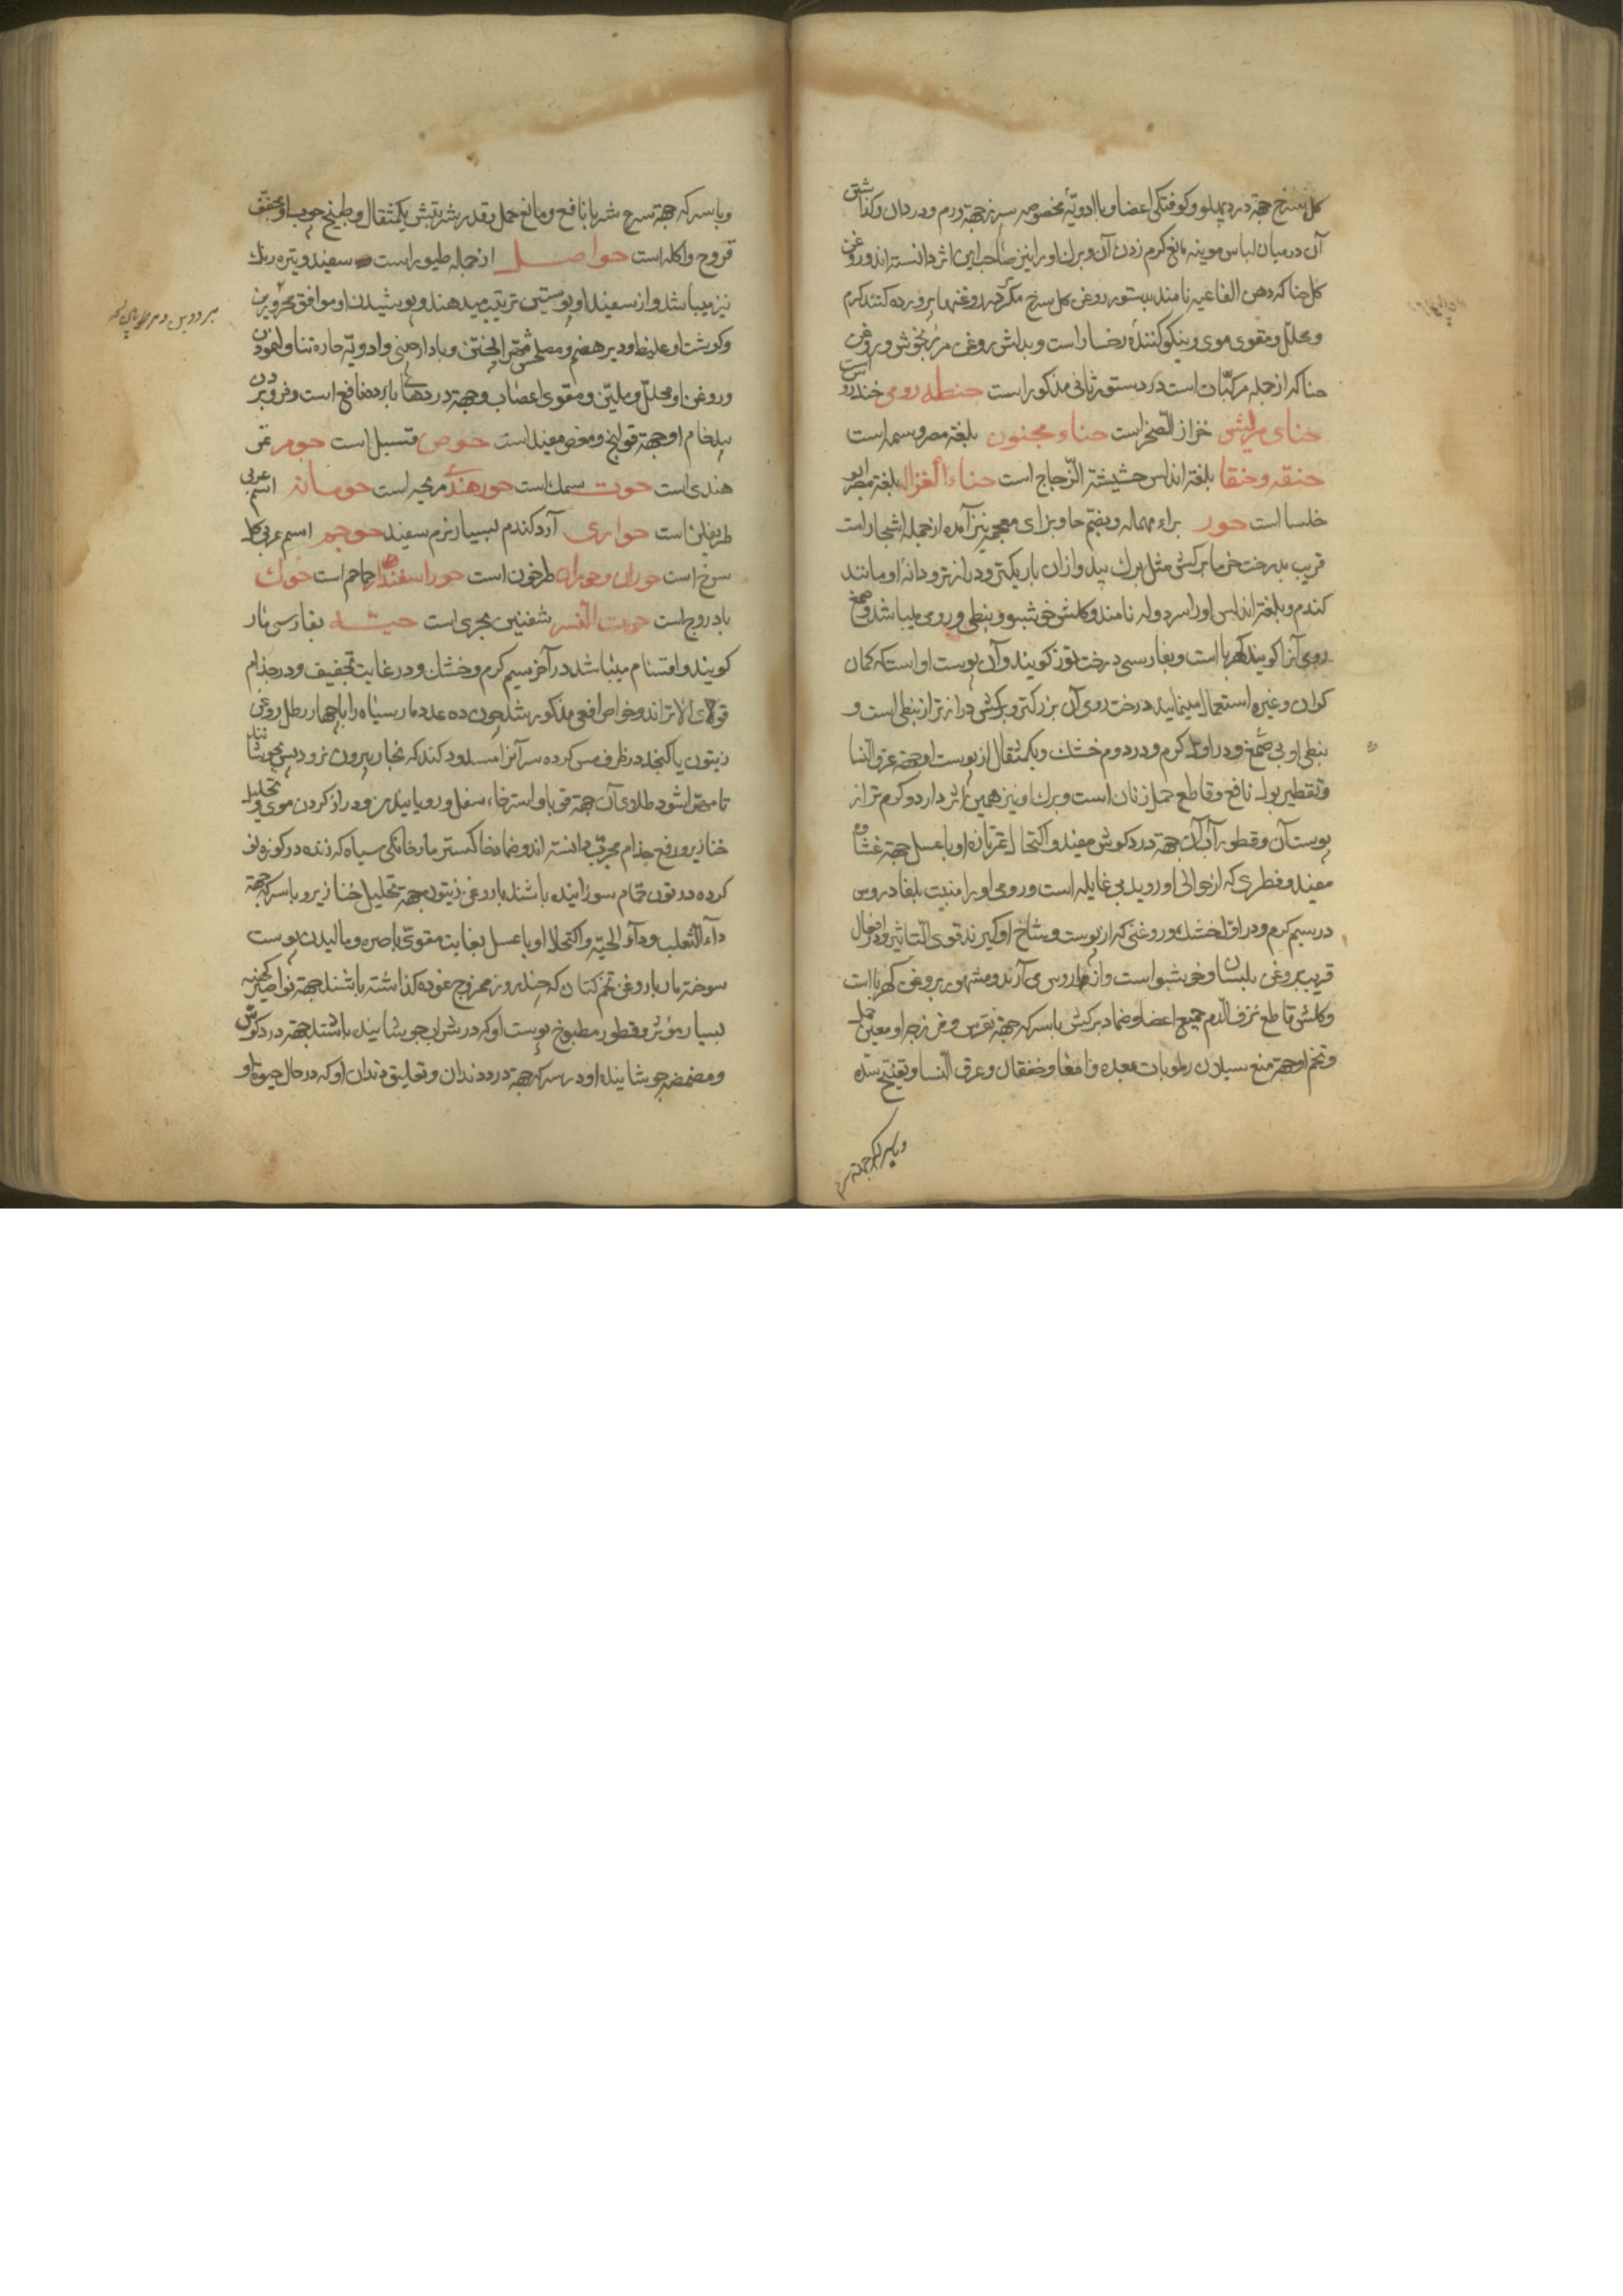 کل سرخ جهة درد پهلو و کوفتکی اعضا و با ادویهٔ مخصوصه سرز جهة ورم و درد آن و کذاشتن
آن در میان لباس موینه مانع کرم زدن آن و برك او را نیز صاحب این اثر دانسته اند و روغن
کل حنا که دهن الفاغیه نامند بدستور روغن کل سرخ مکرر در روغنها پرورده کنند کرم
و محلل و مقوی موی و نیکو کنندهٔ رخسار است و بدلش روغن مرزنجوش و روغن
حنا که از جمله مرکبات است در دستور ثانی مذکور است حنطه رومی خندروس است
حنای قریش خزاز الصخر است حناء مجنون بلغة مصر وسمه است
حنقه و حنقا بلغة اندلس حشیشة الزجاج است حناء الغزاله بلغة مصر ابو
خلسا است حور براء مهمله و بفتح حا و بزای معجمه نیز آمده از جمله اشجار است
قریب بدرخت خرما برکش مثل برك بید و ازان باریکتر و درازتر و دانهٔ او مانند
کندم و بلغة اندلس او را سردوله نامند و کلش خوشبو و نبطی و رومی میباشد و صمغ
رومی آنرا کویند کهربا است و بفارسی درخت توز کویند و آن پوست او است که کمان
کران و غیره استعمال مینمایند درخت رومی آن بزرکتر و برکش درازتر از نبطی است و
نبطی او بی صمغ و در اول کرم و در دوم خشك و یکمثقال از پوست او جهة عرق النسا
و تقطیر بول نافع و قاطع حمل زنان است و برك او نیز همین اثر دارد و کرم تر از
پوست آن و قطور آب آن جهة درد کوش مفید و اکتحال ثمر تازه او با عسل جهة غشاوه
مفید و فطری که از حوالی او روید بی غایله است و رومی او را منبت بلغار و روس
در سیم کرم و در اول خشك و روغنی که از پوست و شاخ او کیرند قوی التاثیر و در افعال
قریب بروغن بلسان و خوشبو است و از روس می آرند و مشهور بروغن کهربا است
و کلش قاطع نزف الدم جمیع اعضا و ضماد برکش با سرکه جهة نقرس و فرزجه او معین حمل
و تخم او جهة منع سیلان رطوبات معده و امعا و خفقان و عرق النسا و تفتیح سده
و با سرکه جهة سرع
و با سرکه جهة سرع شربا نافع و مانع حمل بقدر شربتش یکمثقال و طبیخ چوب او مجفف
قروح و اکله است حواصل از جمله طیور است سفید و تیره رنك
نیز میباشد و از سفید او پوستین ترتیب میدهند و پوشیدن او موافق محرورین
و کوشت او غلیظ و دیر هضم و مصلحش مهرا پختن و با دارچینی و ادویه حاره تناول نمودن
و روغن او محلل و ملین و مقوی اعصاب و جهة دردهای بارده نافع است و فرو بردن
پیه خام او جهة قولنج و مغص مفید است حوص قتسبل است حومر تمر
هندی است حوت سمك است حور هندی مریحه است حومانه اسم عربی
طریفلن است حواری آرد کندم بسیار نرم سفید حوجم اسم عربی کل
سرخ است حوران و حوران طرخون است حوراسفند حماحم است حوك
بادروج است حوت النسر شفنین بحری است حیه بفارسی مار
کویند و اقسام میباشد در آخر سیم کرم و خشك و در غایت تجفیف و در جذام
قوی الاثر اند و خواص افعی مذکور شد چون ده عدد مار سیاه را با چهار رطل روغن
زیتون یا کنجد در ظرف مس کرده سر آنرا مسدود کنند که بخار بیرون نرود پس بجوشانند
تا مهرا شود طلای آن جهة قوبا و استرخاء سفل و رویانیدن و دراز کردن موی و تحلیل
خنازیر و رفع جذام مجرب دانسته اند و ضماد خاکستر مار خانکی سیاه که زنده در کوزه نو
کرده در تون حمام سوزانیده باشند با روغن زیتون جهة تحلیل خنازیر و با سرکه جهة
داء الثعلب و داء الحیه و اکتحال او با عسل بغایت مقوی باصره و مالیدن پوست
سوخته مار با روغن تخم کتان که چند روز ممزوج نموده کذاشته باشند جهة نواصیر کهنه
بسیار مؤثر و قطور مطبوخ پوست او که در شراب جوشانیده باشند جهة درد کوش
و مضمضه جوشانیده او در سرکه جهة درد دندان و تعلیق دندان او که در حال حیوة او